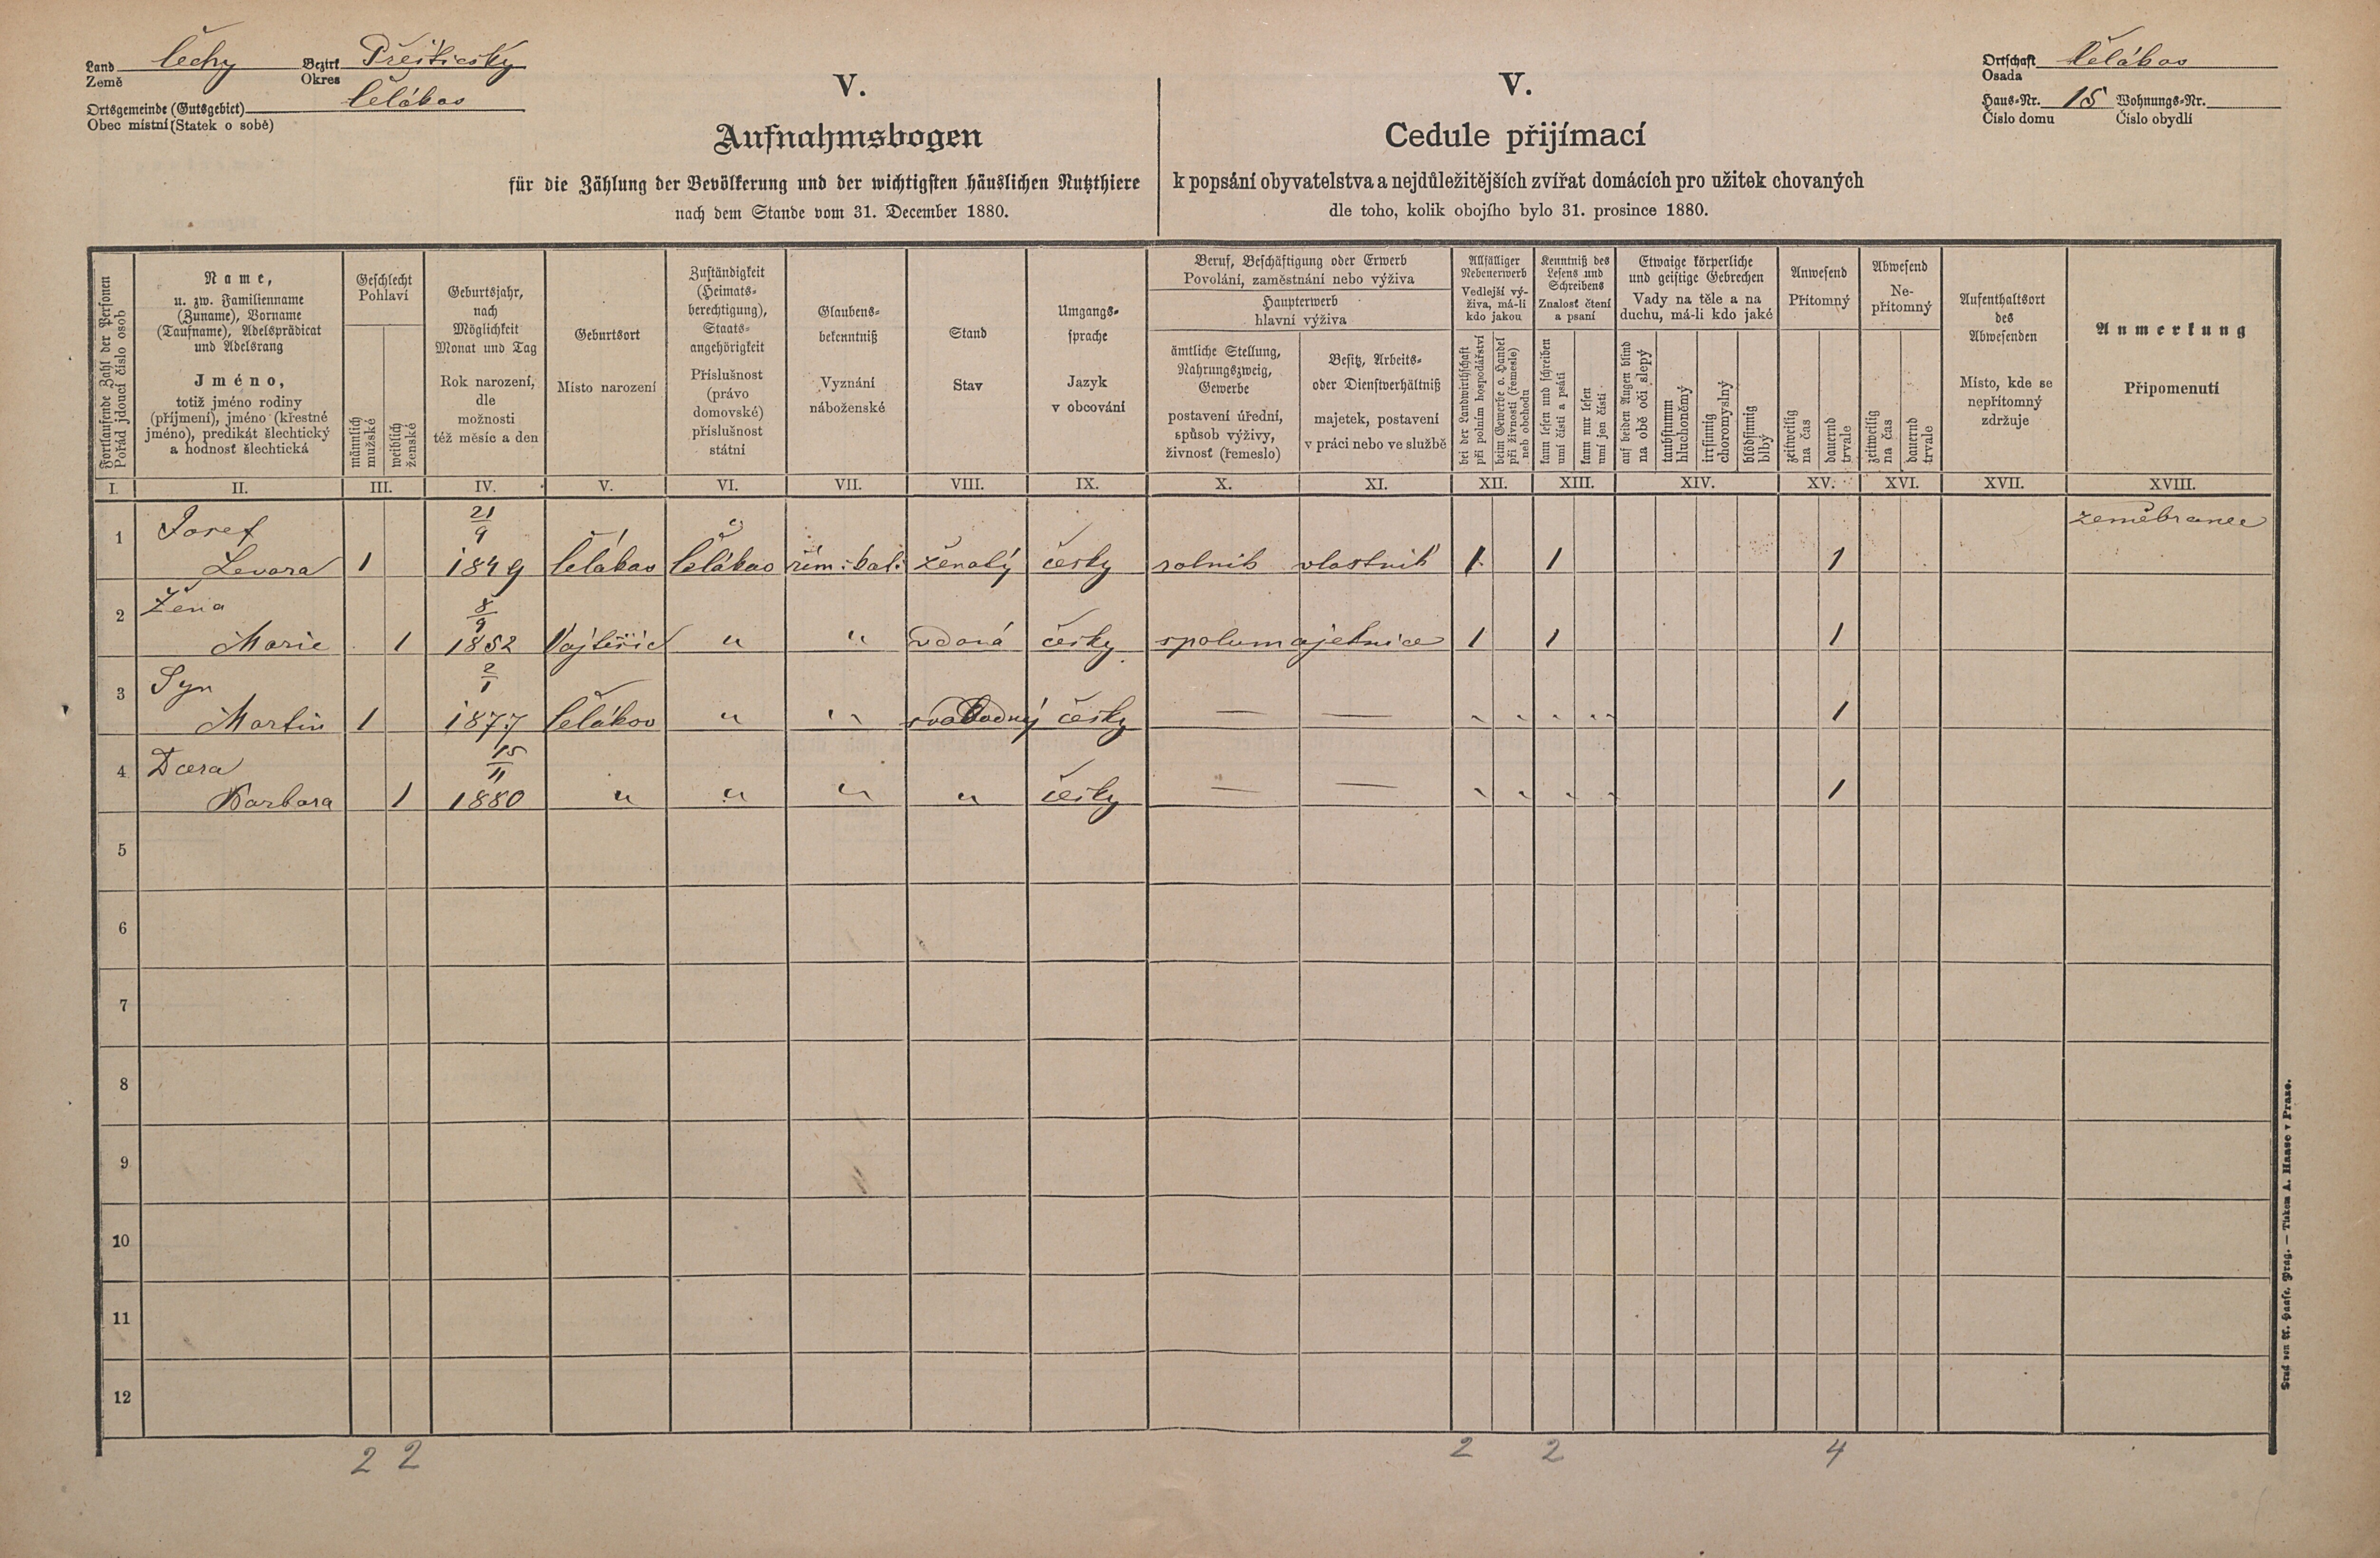 Land Čechy Bezirk Přeštický
Země Okres
Ortsgemeinde (Gutsgebiet) Čelákov
Obec místní (Statek o sobě)
Ortschaft Čelákov
Osada
Haus-Nr. 15 Wohnungs-Nr.
Číslo domu Číslo obydlí
V.
Aufnahmsbogen
für die Zählung der Bevölkerung und der wichtigsten häuslichen Nutzthiere
nach dem Stande vom 31. December 1880.
V.
Cedule přijímací
k popsání obyvatelstva a nejdůležitějších zvířat domácích pro užitek chovaných
dle toho, kolik obojího bylo 31. prosince 1880.
Fortlaufende Zahl der Personen
Pořád jdoucí číslo osob
Name,
u. zw. Familienname
(Zuname), Vorname
(Taufname), Adelsprädicat
und Adelsrang
Jméno,
totiž jméno rodiny
(příjmení), jméno (křestné
jméno), predikát šlechtický
a hodnosť šlechtická
Geschlecht
Pohlaví
männlich
mužské
weiblich
ženské
Geburtsjahr,
nach
Möglichkeit
Monat und Tag
Rok narození,
dle
možnosti
též měsíc a den
Geburtsort
Místo narození
Zuständigkeit
(Heimats-
berechtigung),
Staats-
angehörigkeit
Příslušnost
(právo
domovské)
příslušnost
státní
Glaubens-
bekenntniß
Vyznání
náboženské
Stand
Stav
Umgangs-
sprache
Jazyk
v obcování
Beruf, Beschäftigung oder Erwerb
Povolání, zaměstnání nebo výživa
Haupterwerb
hlavní výživa
ämtliche Stellung,
Nahrungszweig,
Gewerbe
postavení úřední,
spůsob výživy,
živnosť (řemeslo)
Besitz, Arbeits-
oder Dienstverhältniß
majetek, postavení
v práci nebo ve službě
Allfälliger
Nebenerwerb
Vedlejší vý-
živa, má-li
kdo jakou
bei der Landwirthschaft
při polním hospodářství
beim Gewerbe o. Handel
při živnosti (řemesle)
neb obchodu
Kenntniß des
Lesens und
Schreibens
Znalosť čtení
a psaní
kann lesen und schreiben
umí čísti a psáti
kann nur lesen
umí jen čísti
Etwaige körperliche
und geistige Gebrechen
Vady na těle a na
duchu, má-li kdo jaké
auf beiden Augen blind
na obě oči slepý
taubstumm
hluchoněmý
irrsinnig
choromyslný
blödsinnig
blbý
Anwesend
Přítomný
zeitweilig
na čas
dauernd
trvale
Abwesend
Ne-
přítomný
zeitweilig
na čas
dauernd
trvale
Aufenthaltsort
des
Abwesenden
Místo, kde se
nepřítomný
zdržuje
Anmerkung
Připomenutí
I. II. III. IV. V. VI. VII. VIII. IX. X. XI. XII. XIII. XIV. XV. XVI. XVII. XVIII.
Josef 21/9 zeměbranec
1 Levora 1 1849 Čelákov Čelákov řím: kat: ženatý česky rolník vlastník 1 1 1
Žena 8/9
2 Marie 1 1852 " " vdaná česky spolumajetnice 1 1 1
Syn 2/1
3 Martin 1 1877 Čelákov " " svobodný česky — — 1
Dcera 15/11
4 Barbora 1 1880 " " " " česky — — 1
5
6
7
8
9
10
11
12
2 2 2 2 4
Druck von A. Haase, Prag. — Tiskem A. Haase v Praze.